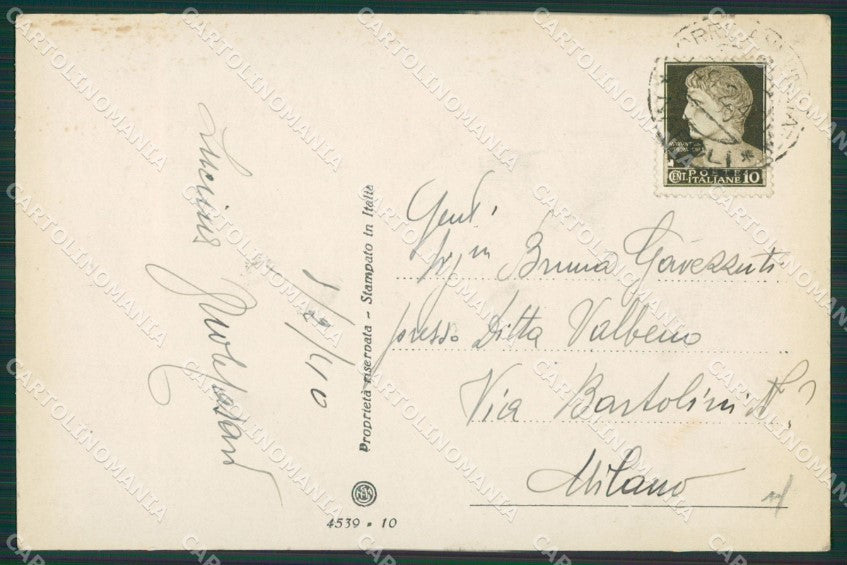 Lucina
1/2/40
Proprietà riservata - Stampato in Italia
4539 - 10
CENT. POSTE ITALIANE 10
Gent.
Sig.na Bruna Gavezzuti
presso Ditta Valbeno
Via Bartolini N.?
Milano
CARTOLINOMANIA